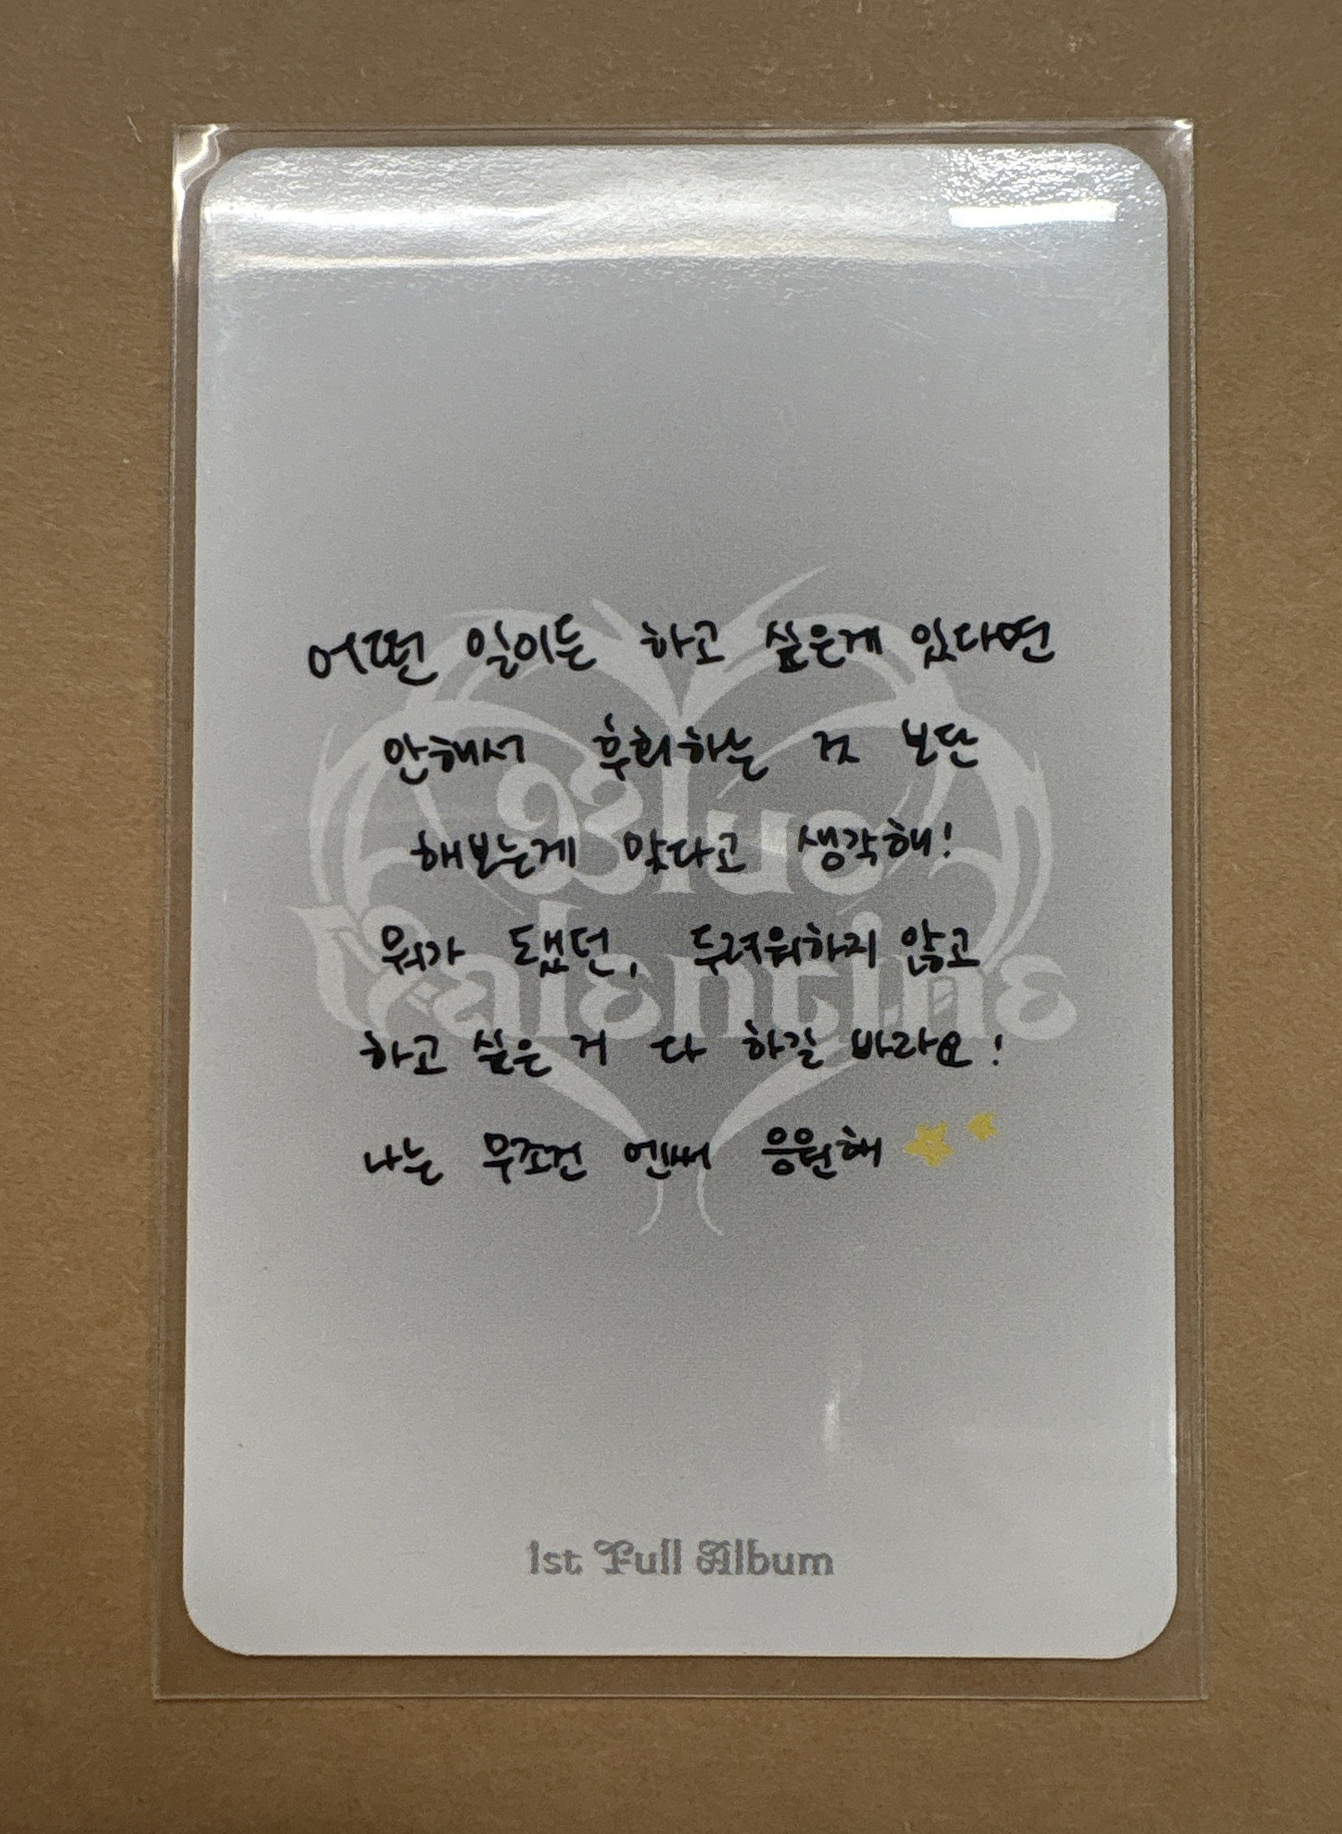 어떤 일이든 하고 싶은게 있다면
안해서 후회하는 것 보단
Blue
해보는게 맞다고 생각해!
Valentine
뭐가 됐던, 두려워하지 않고
하고 싶은 거 다 하길 바라요!
나는 무조건 엔써 응원해
1st Full Album